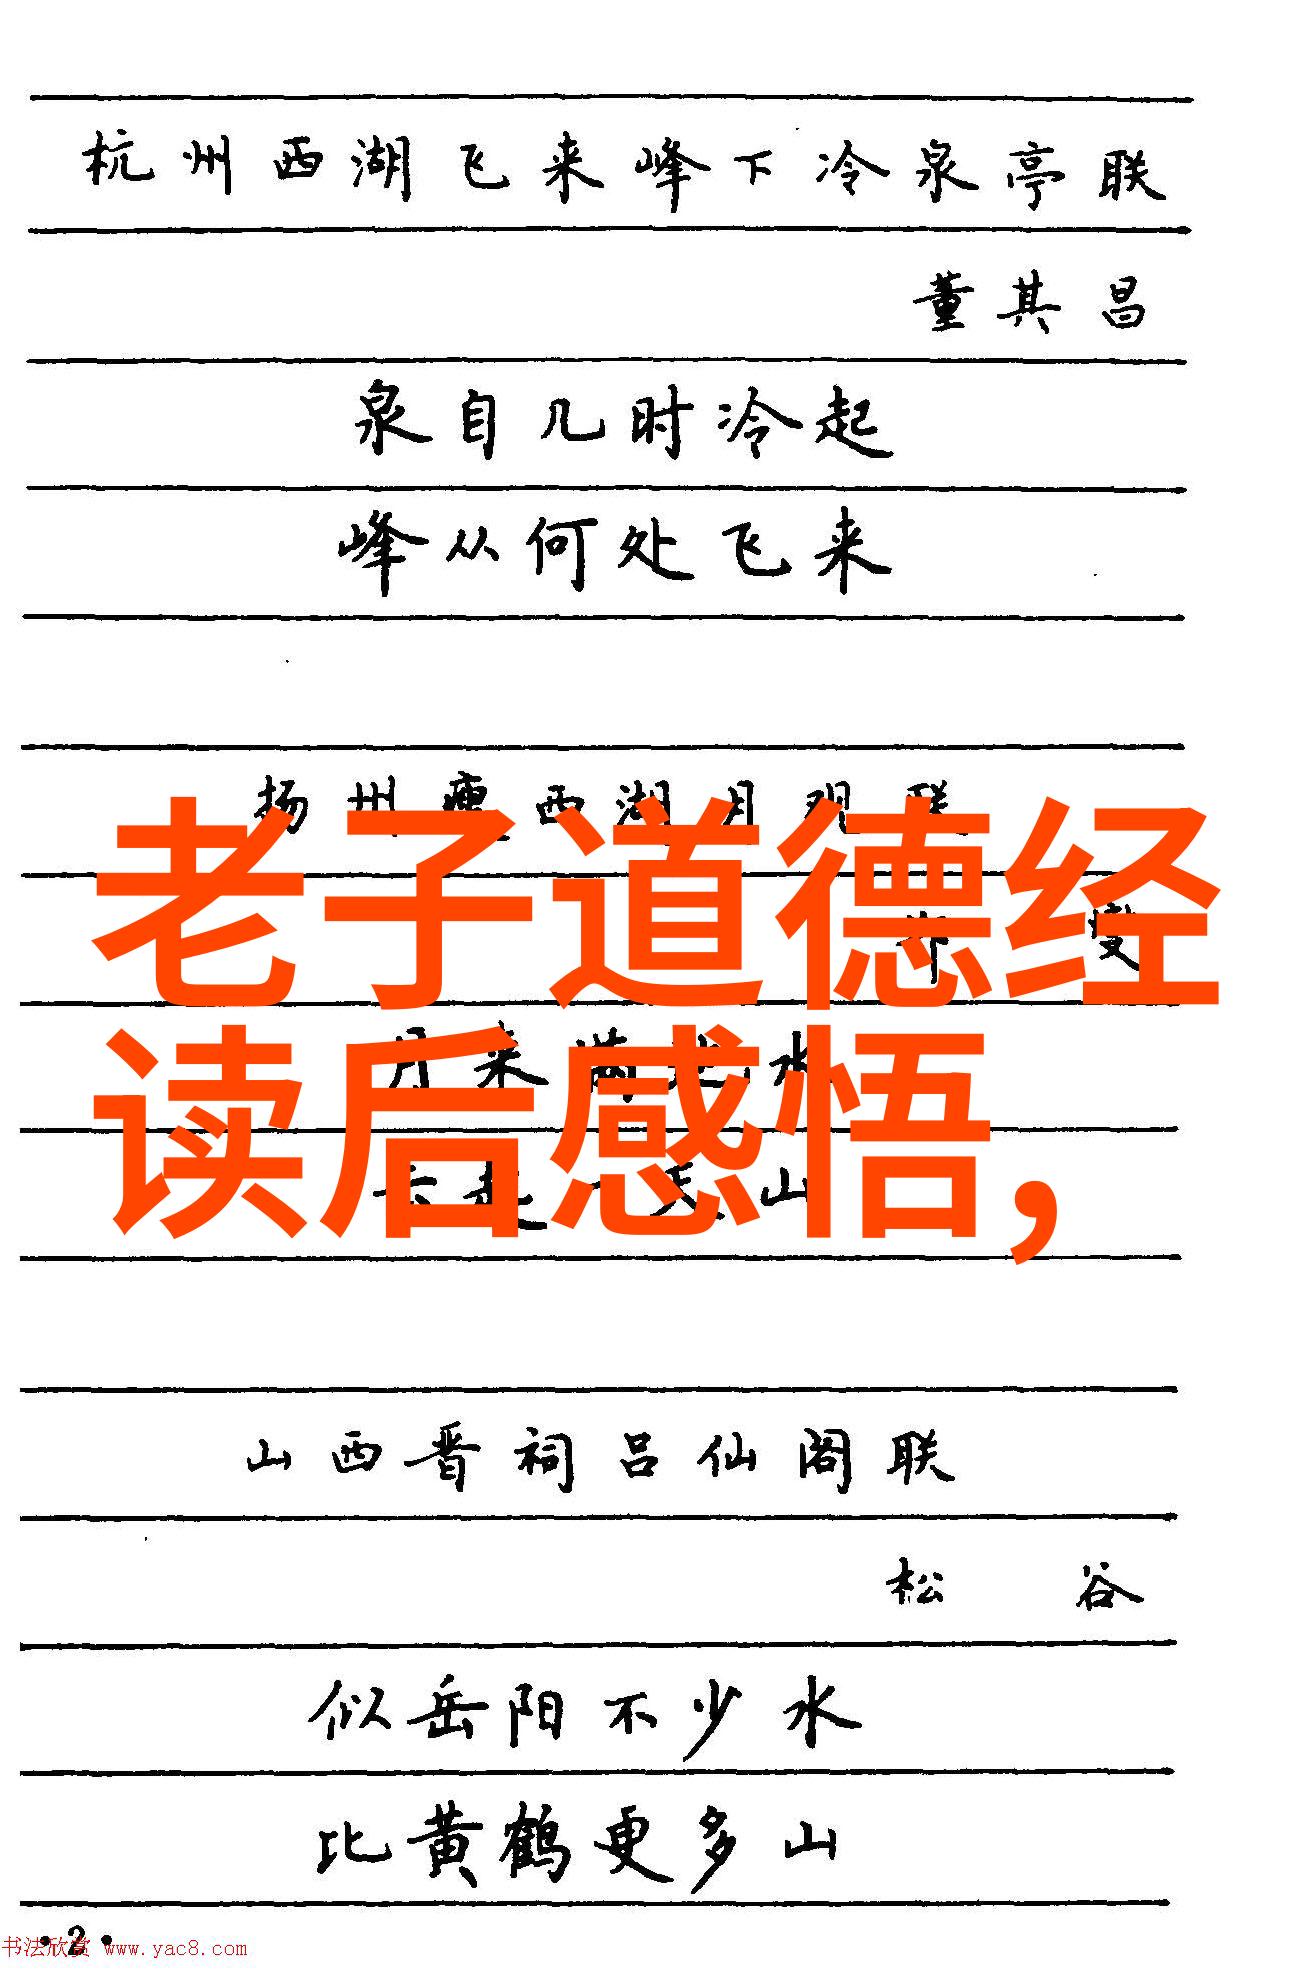 杭州西湖飞来峰下冷泉亭联
董其昌
泉自几时冷起
峰从何处飞来
扬州瘦西湖月观联
老子道德经
燮
月来满地水
读后感悟,
云起一天山
山西晋祠吕仙阁联
松谷
似岳阳不少水
比黄鹤更多山
·2·
书法欣赏 www.yac8.com